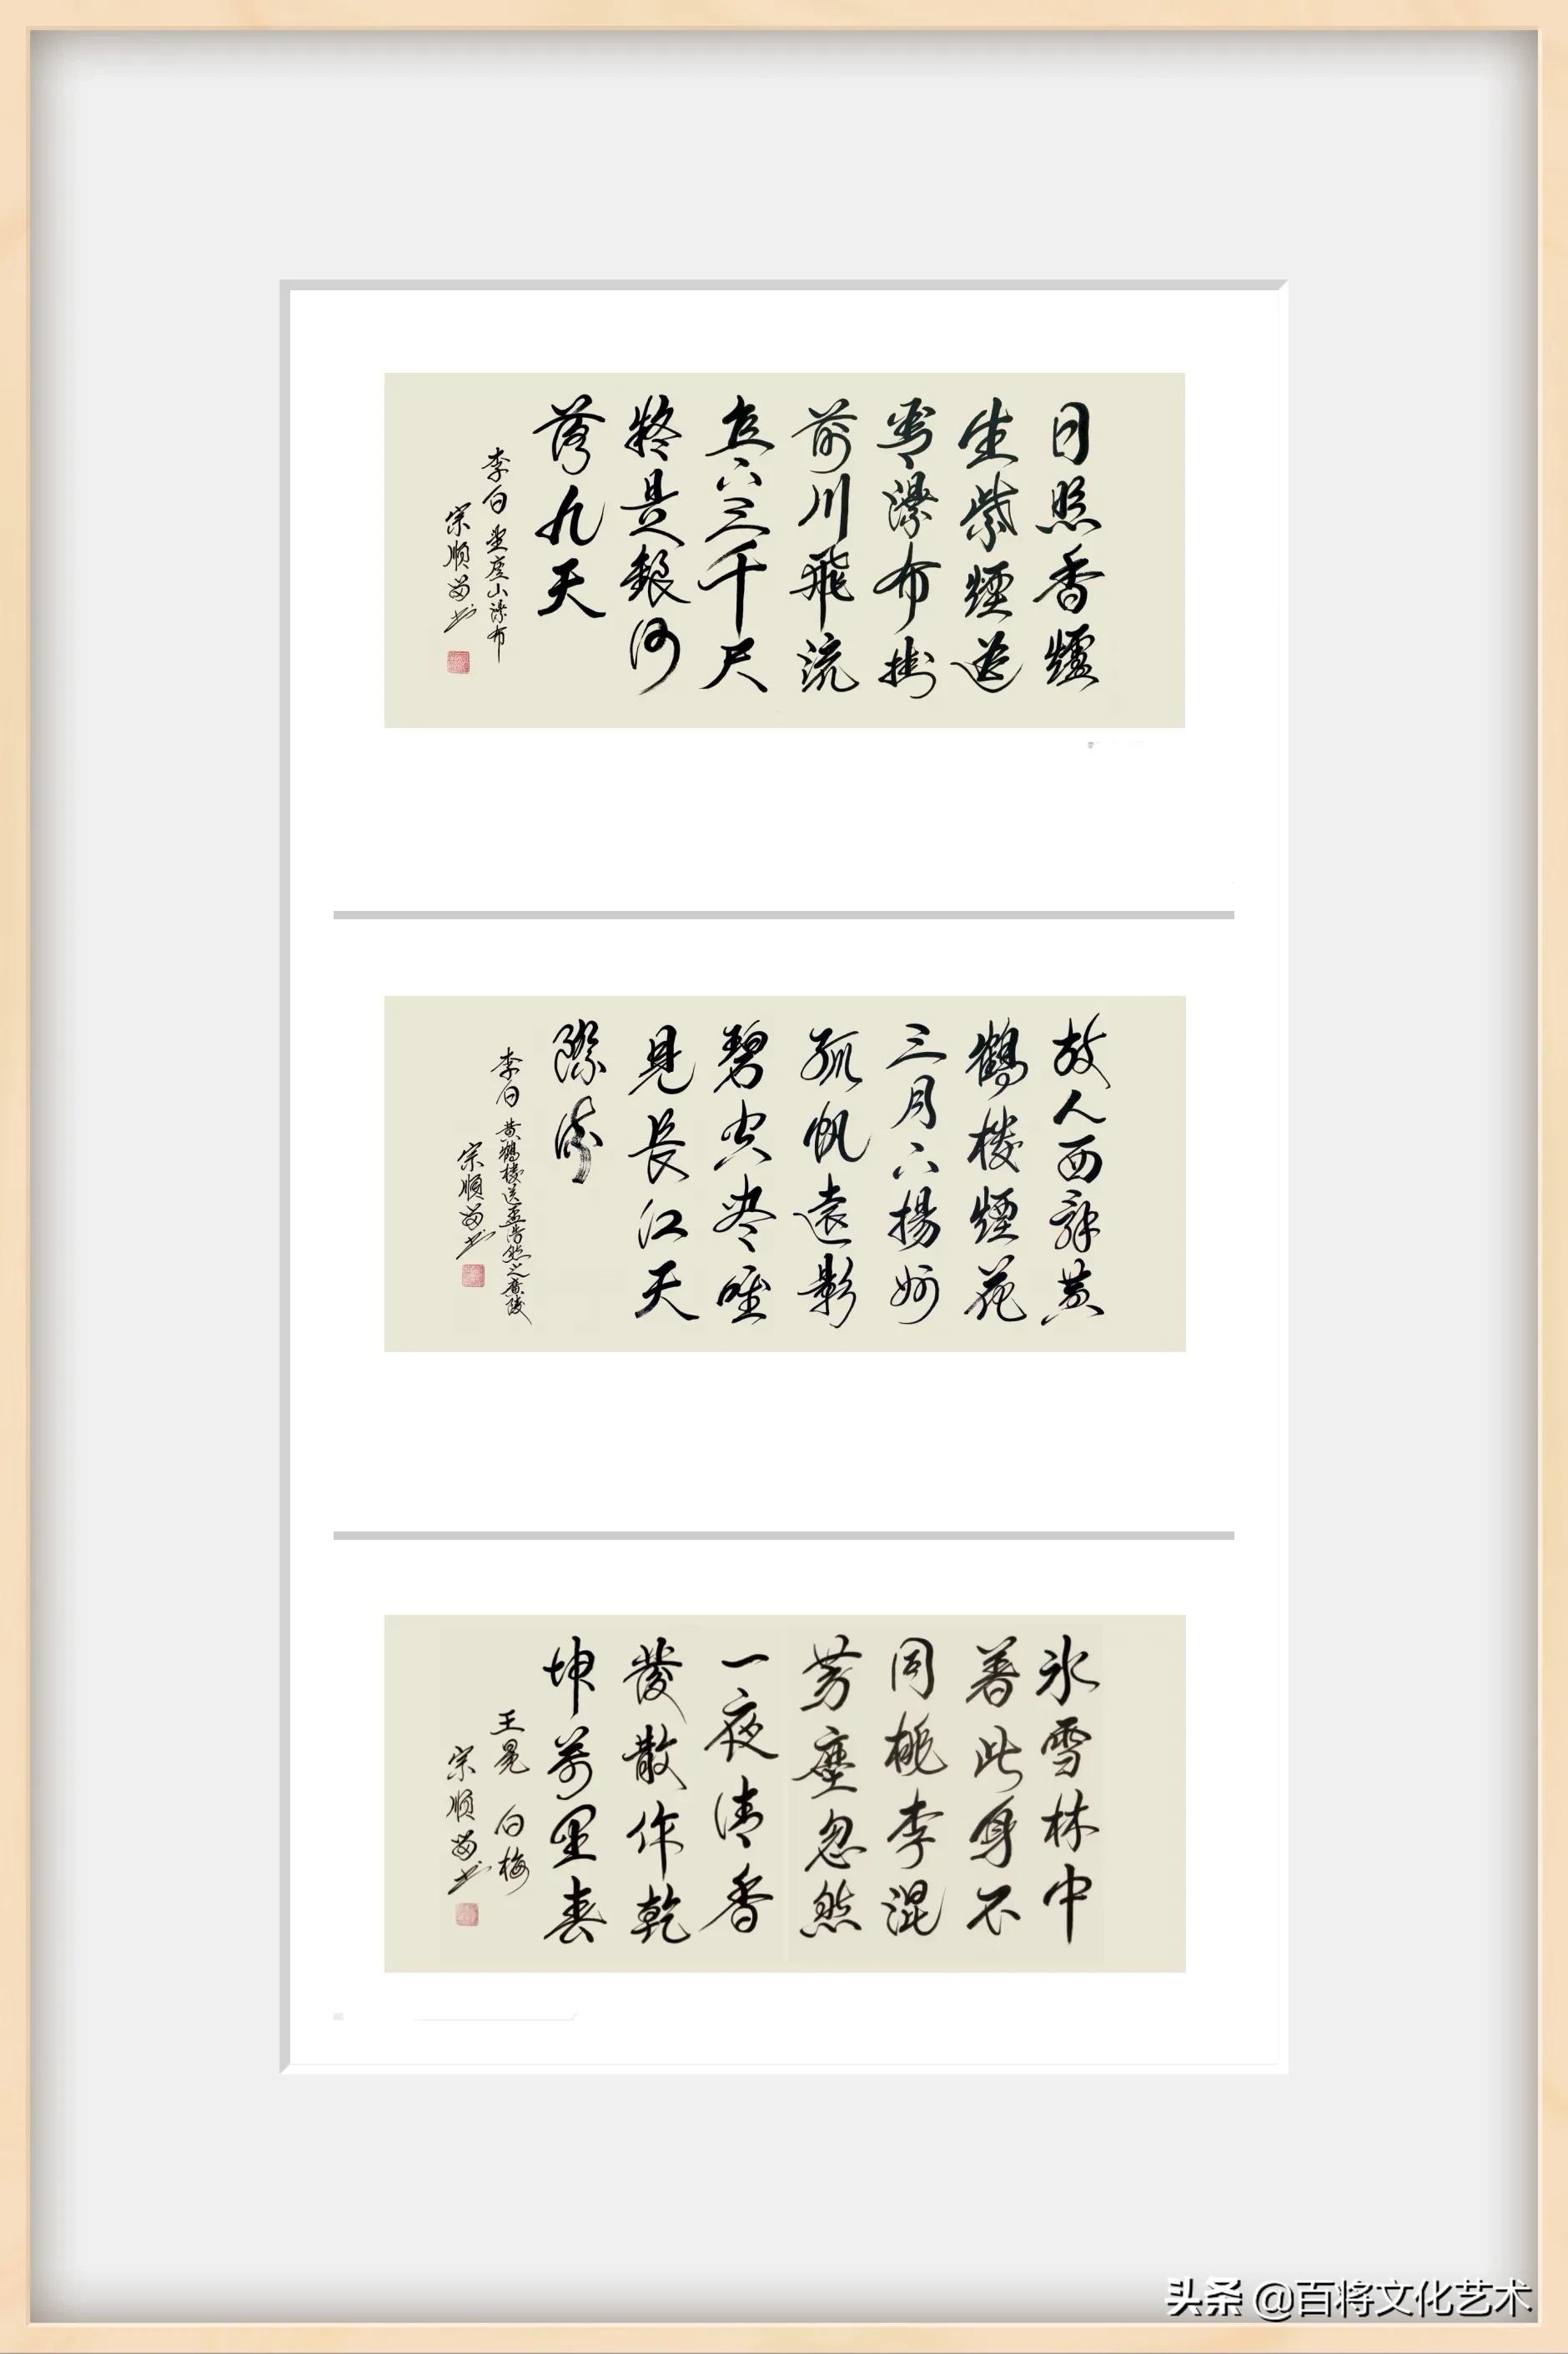 日照香爐
生紫煙遥
看瀑布掛
前川飛流
直下三千尺
疑是銀河
落九天
李白 望廬山瀑布
宗順书
故人西辞黄
鶴楼煙花
三月下揚州
孤帆遠影
碧空尽唯
見長江天
際流
李白 黄鶴楼送孟浩然之廣陵
宗順书
冰雪林中
著此身不
同桃李混
芳塵忽然
一夜清香
發散作乾
坤萬里春
王冕 白梅
宗順书
头条 @百将文化艺术